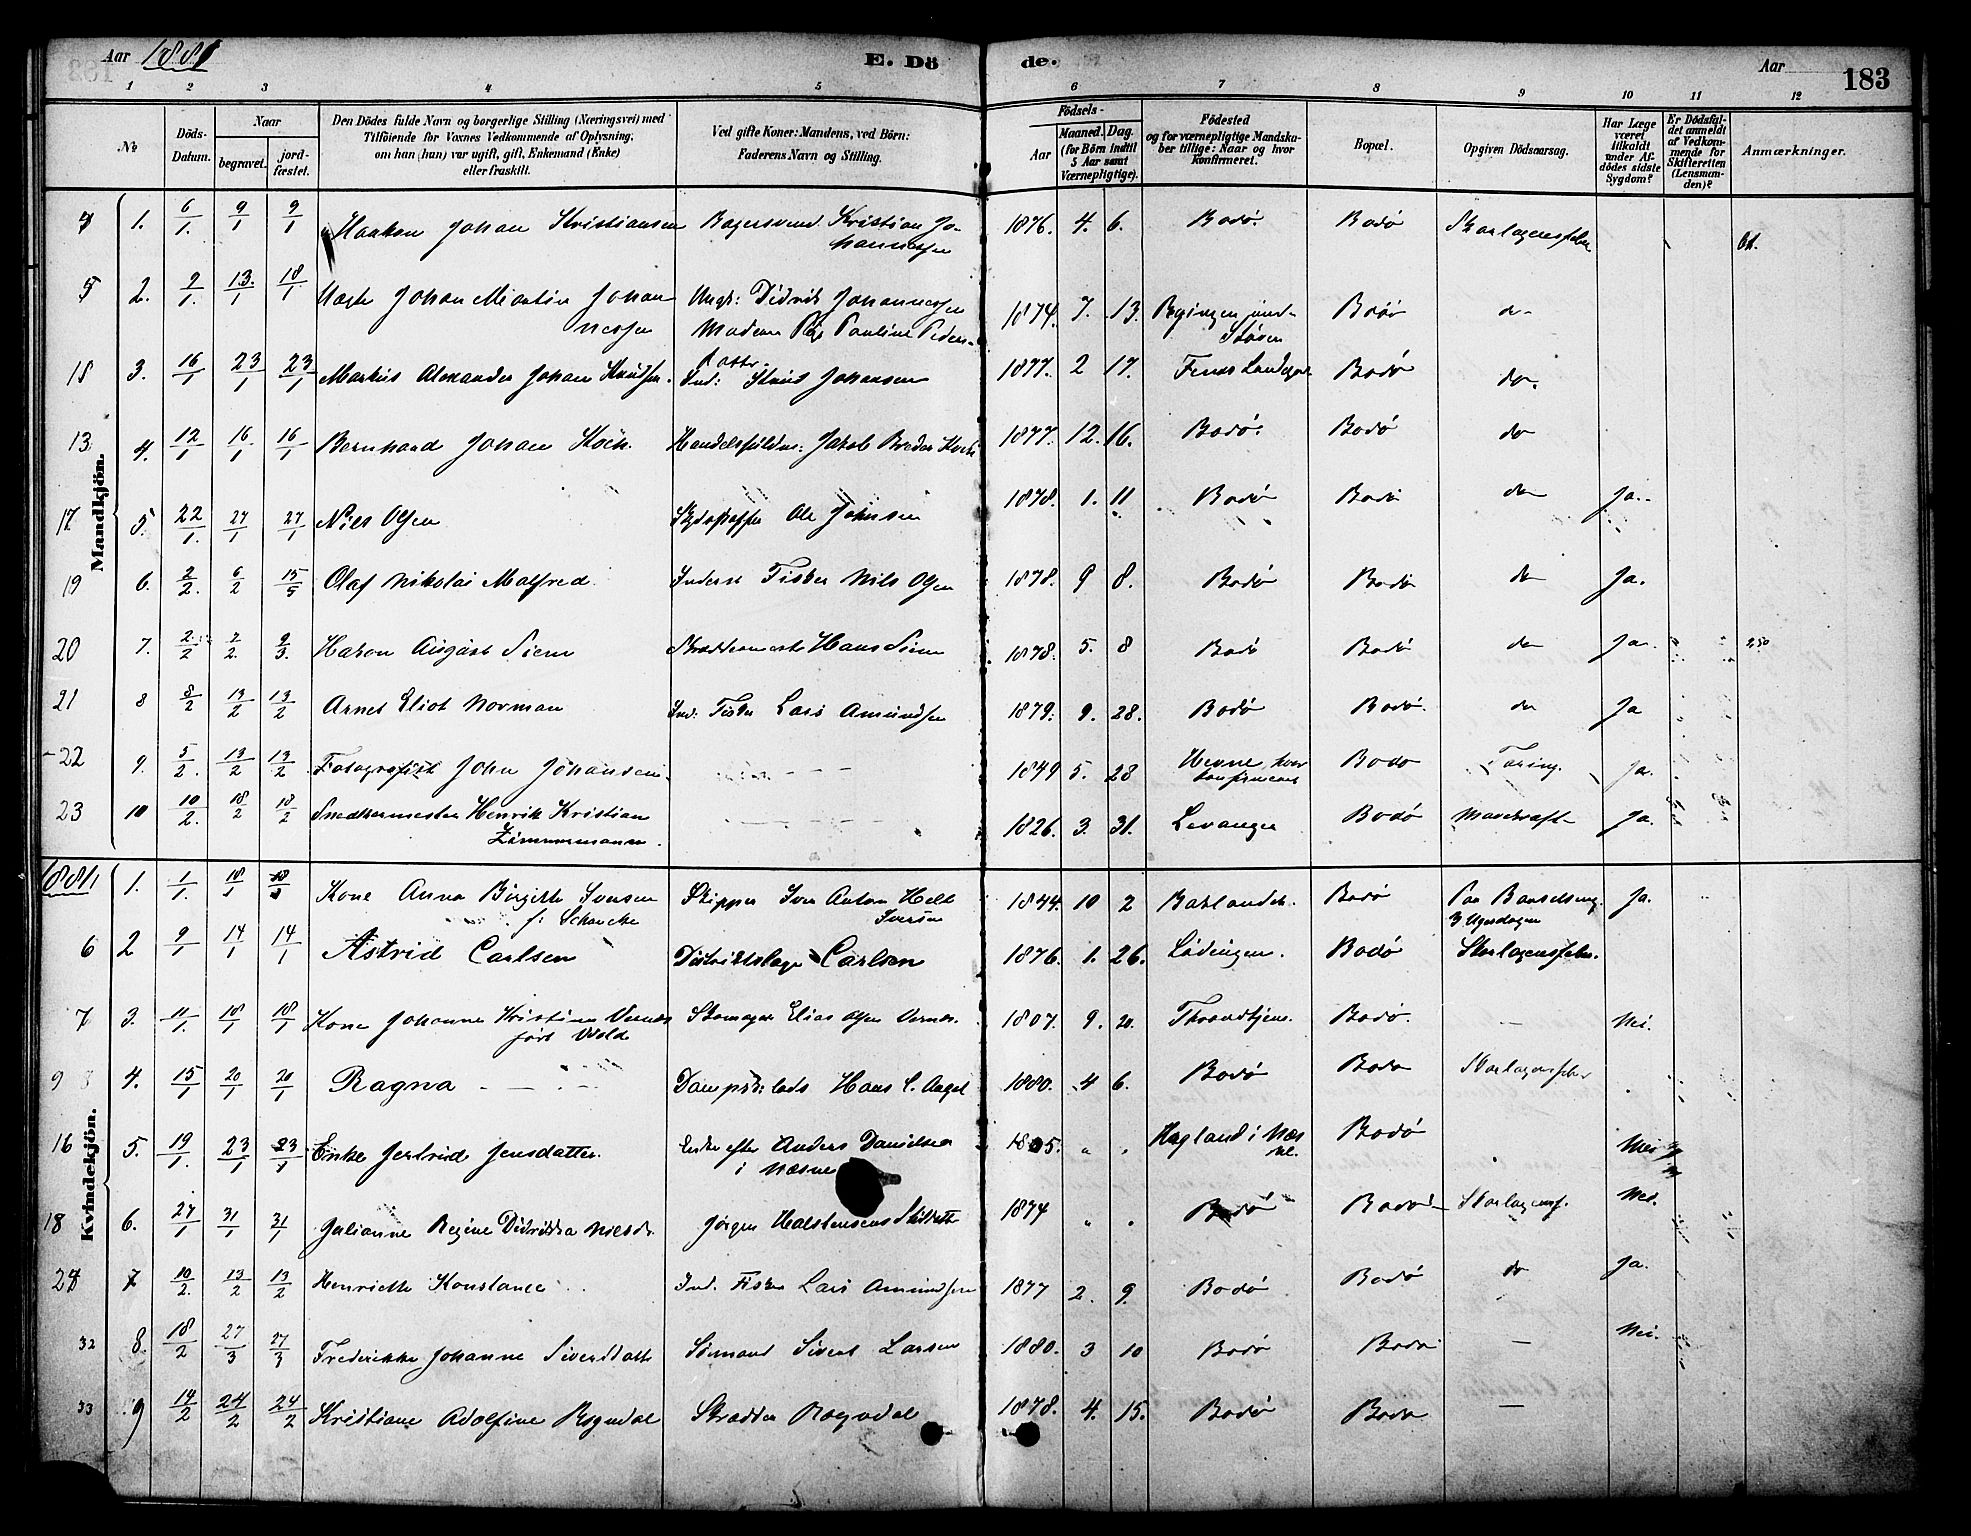 Aar 1881
E. Dö
de.
Aar
183
1 2 3 4 5 6 7 8 9 10 11 12
No
Döds-Datum.
Naar
begravet.
jord-fæstet.
Den Dödes fulde Navn og borgerlige Stilling (Næringsvei) med
Tilföiende for Voxnes Vedkommende af Oplysning,
om han (hun) var ugift, gift, Enkemand (Enke)
eller fraskilt.
Ved gifte Koner: Mandens, ved Börn:
Faderens Navn og Stilling.
Födsels-
Aar
Maaned. Dag.
(for Börn indtil
5 Aar samt
Værnepligtige).
Födested
og for værnepligtige Mandska-
ber tillige: Naar og hvor
Konfirmeret.
Bopæl.
Opgiven Dödsaarsag.
Har Læge
været
tilkaldt
under Af-
dödes sidste
Sygdom?
Er Dödsfal-
det anmeldt
af Vedkom-
mende for
Skifteretten
(Lensman-
den)?
Anmærkninger.
Mandkjön.
1. 6/1. 9/1 9/1 Haakon Johan Kristiansen Bagersvend Kristian Jo- 1876. 4. 6. Bodø. Bodø Skarlagensfeber
hannessen
5 2. 9/1. 13./1 18/1 Johan Martin Johan- Ungk: Didrik Johannessen 1874. 7. 13. Bodø do
nessen Pauline Peders-
datter
15 3. 16/1 23/1 23/1 Markus Alexander Johan Knudsen. Ind: Knud Johansen 1877. 2 17. Bodø do.
13 4. 12/1 16./1 16/1 Bernhard Johan Koch. Jakob Breder Koch 1877. 12. 16. Bodø. Bodø do
17 5. 22/1. 27/1 27/1 Nils Olsen Ole Johnsen 1878. 1. 11 Bodø Bodø do Ja.
19 6. 2/2. 6/2 15/5 Olaf Nikolai Malfred. Inderst Fisker Nils Olsen 1878. 9 8. Bodø Bodø do Ja.
20 7. 2/2 7/2. 9/3. Hakon August Siem Skreddermester Hans Siem 1878. 5. 8 Bodø Bodø do Ja.
21 8 8/2 13/2 13/2 Arnet Eliot Norman Ind: Fisker Lars Amundsen 1879. 9. 28. Bodø Bodø. do Ja
22 9. 5/2. 13/2 13/2 Fotografist John Johansen. 1849 5. 28 Hevne, hvor Bodø Tæring. Ja.
konfirmeret
23 10 10/2. 18/2 18/2 Snedkermester Henrik Kristian 1826. 3. 31. Levanger Bodø Mavekræft Ja.
Zimmermann.
1881
Kvindekjön.
1. 1/1. 18/1 18/1 Kone Anna Birgitte Iversen Skipper Iver Anton Helt 1844. 10 2 Bodø Paa Barselseng. Ja.
f: Schancke Iversen 3 Ugedagen
6 2 9/1 14/1 14/1 Astrid Carlsen Distriktslæge Carlsen 1876. 1. 26. Lødingen. Bodø Skarlagensfeber.
7 3. 11/1. 18/1 18/1 Kone Johanne Kristine Vernes Skomager Elias Olsen Vernes. 1807. 9. 20. Throndhjem. Bodø. — Nei.
født Wold
9 4. 15/1 20/1 20/1 Ragna Dampskibslods Hans C. Angel 1880. 4 6. Bodø Bodø Skarlagensfeber
16 5. 19/1. 23/1 23/1 Enke Jertrud Jensdatter. Enke efter Anders Danielsen Hagland i Næs- Bodø Nei
i Næsne ne.
18 6. 27/1 31/1 31/1 Julianne Regine Didrikka Nilsdr. Jørgen Halstensens 1874 Bodø Bodø Skarlagensf. Nei.
24 7 10/2. 13/2 13/2 Henriette Konstance Ind. Fisker Lars Amundsen 1877 2. 9. Bodø Bodø do Ja.
32 8. 18/2 27/3 27/3 Frederikke Johanne Sivertsdatt Sømand Sivert Larsen 1880. 3 10 Bodø Bodø — Nei.
33 9 14/2 24/2 24/2 Kristiane Adolfine Rogndal Skrædder Rogndal 1878. 4. 15. Bodø Bodø —